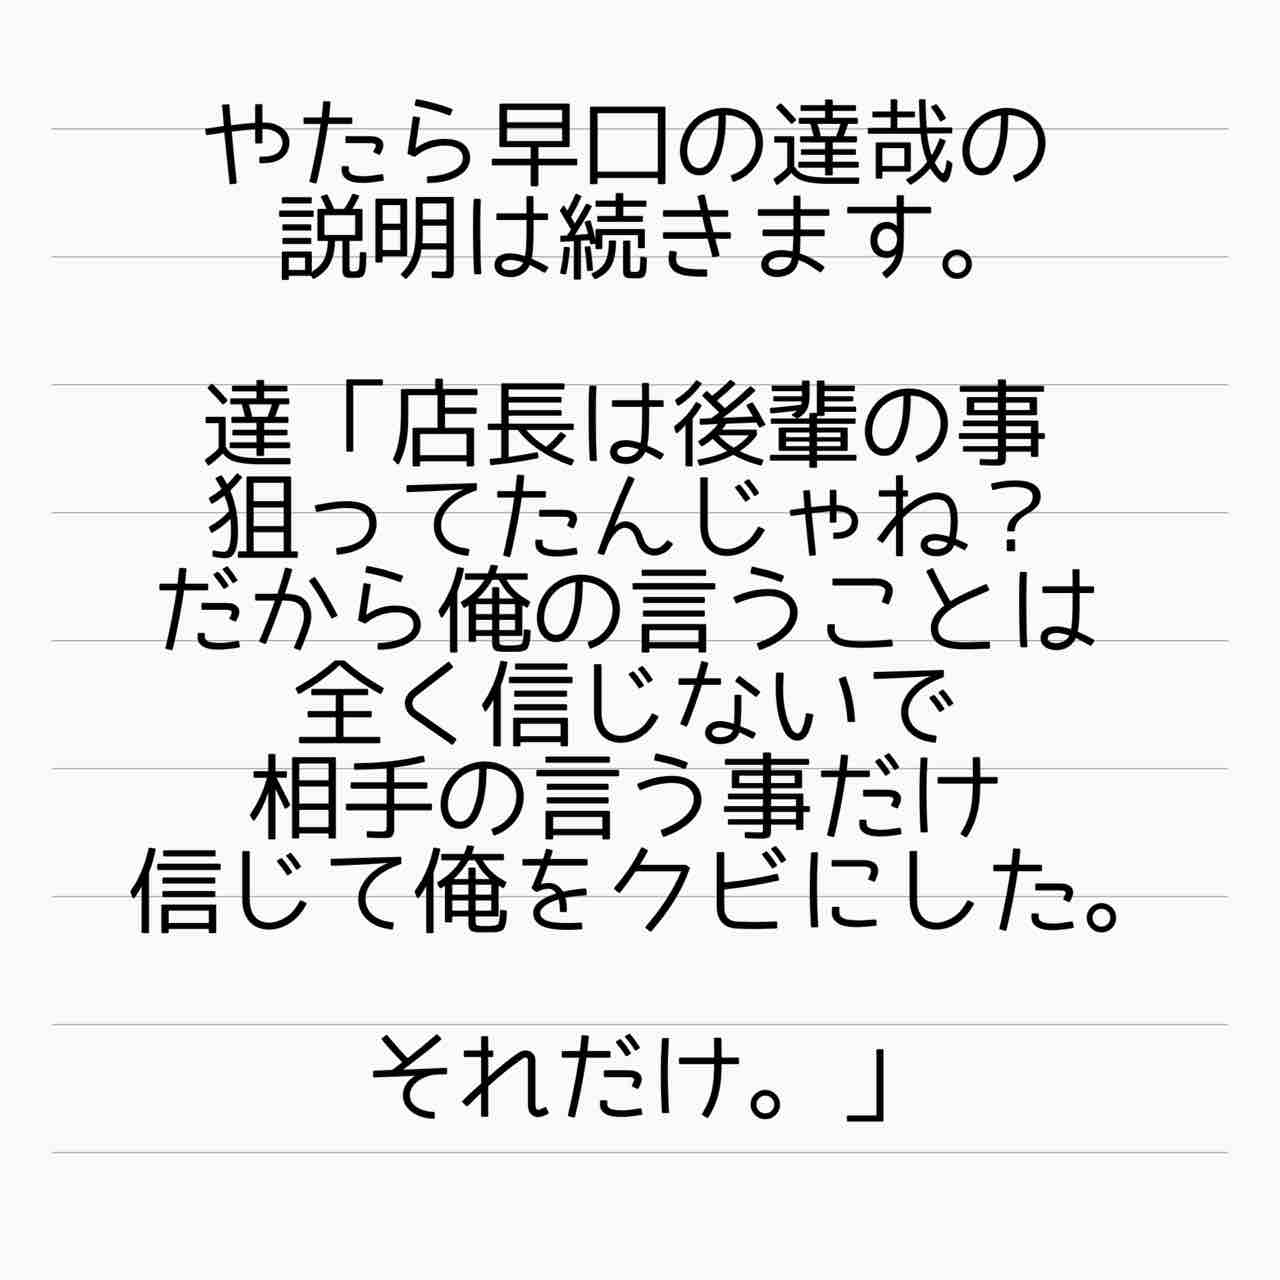 やたら早口の達哉の
説明は続きます。
達「店長は後輩の事
狙ってたんじゃね？
だから俺の言うことは
全く信じないで
相手の言う事だけ
信じて俺をクビにした。
それだけ。」